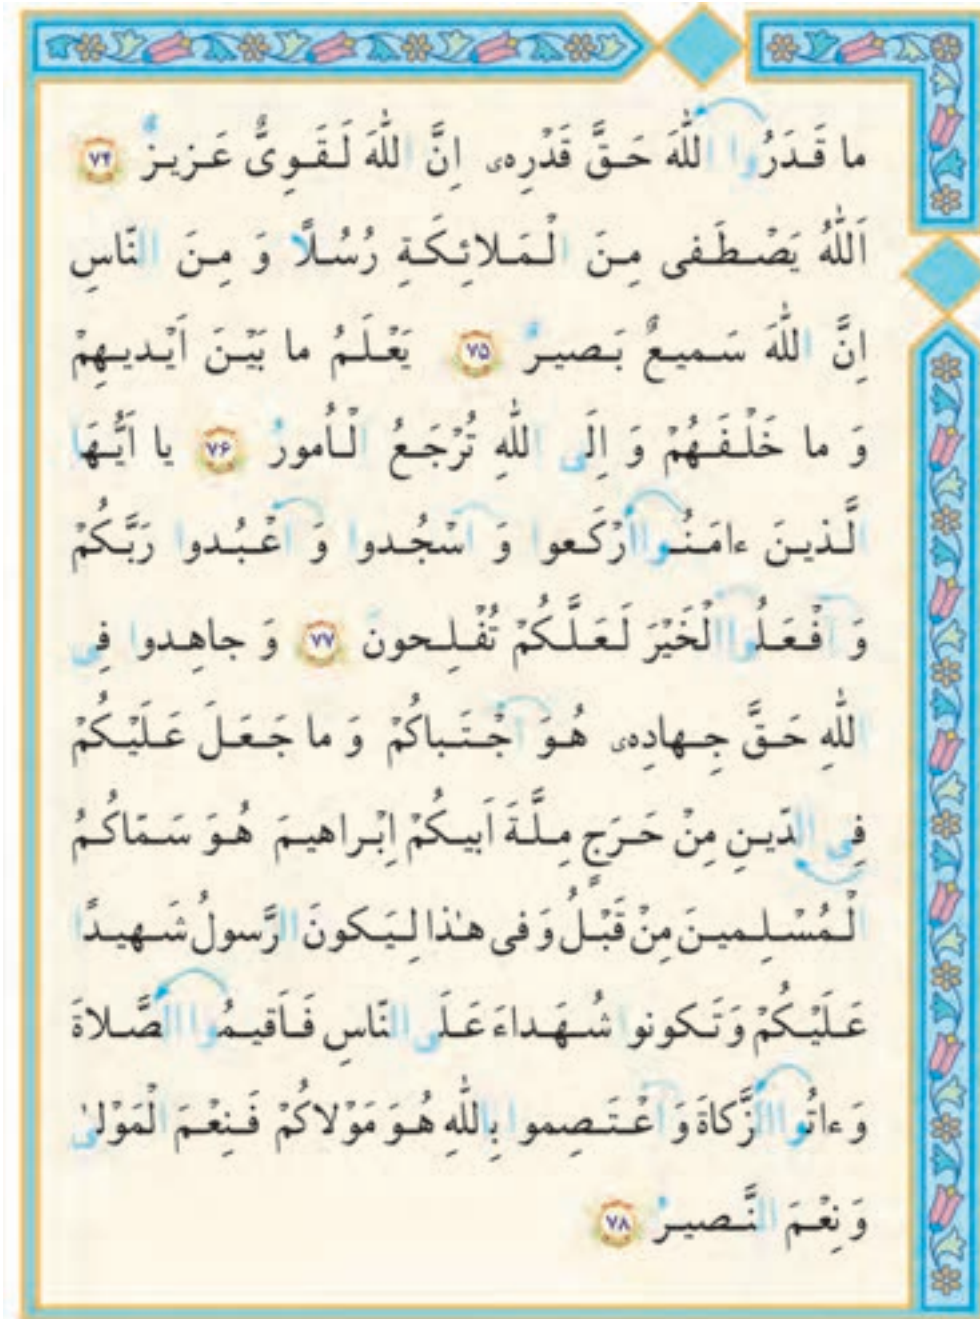 ما قَـدَرُوا اللّٰهَ حَـقَّ قَدْرِهٖی اِنَّ اللّٰهَ لَـقَـوِیٌّ عَـزیـزٌ ﴿۷۴﴾
اَللّٰهُ یَصْـطَـفی مِـنَ الْـمَـلائِـکَـةِ رُسُـلًا وَ مِـنَ النّاسِ
اِنَّ اللّٰهَ سَـمیـعٌ بَـصیـرٌ ﴿۷۵﴾ یَعْـلَـمُ ما بَیْـنَ اَیْـدیـهِمْ
وَ ما خَلْـفَـهُمْ وَ اِلَی اللّٰهِ تُرْجَـعُ الْـاُمورُ ﴿۷۶﴾ یا اَیُّـهَا
الَّـذیـنَ ءامَـنُـوا ارْکَـعوا وَ اسْجُـدوا وَ اعْـبُـدوا رَبَّـکُمْ
وَ افْـعَـلُـوا الْخَیْرَ لَـعَـلَّـکُمْ تُفْـلِـحونَ ﴿۷۷﴾ وَ جاهِـدوا فِی
اللّٰهِ حَـقَّ جِـهادِهٖی هُـوَ اجْـتَـباکُمْ وَ ما جَـعَـلَ عَـلَیْـکُمْ
فِی الدّیـنِ مِنْ حَـرَجٍ مِـلَّـةَ اَبیـکُمْ اِبْـراهیـمَ هُـوَ سَـمّاکُـمُ
الْـمُـسْـلِـمیـنَ مِنْ قَبْـلُ وَ فی هـٰذا لِـیَـکونَ الرَّسولُ شَـهیـدًا
عَـلَیْـکُمْ وَ تَـکونوا شُـهَـداءَ عَـلَی النّاسِ فَـاَقیـمُوا الصَّـلاةَ
وَ ءاتُوا الزَّکاةَ وَ اعْـتَـصِموا بِاللّٰهِ هُـوَ مَوْلاکُمْ فَـنِعْـمَ الْمَوْلیٰ
وَ نِعْـمَ النَّـصیـرُ ﴿۷۸﴾